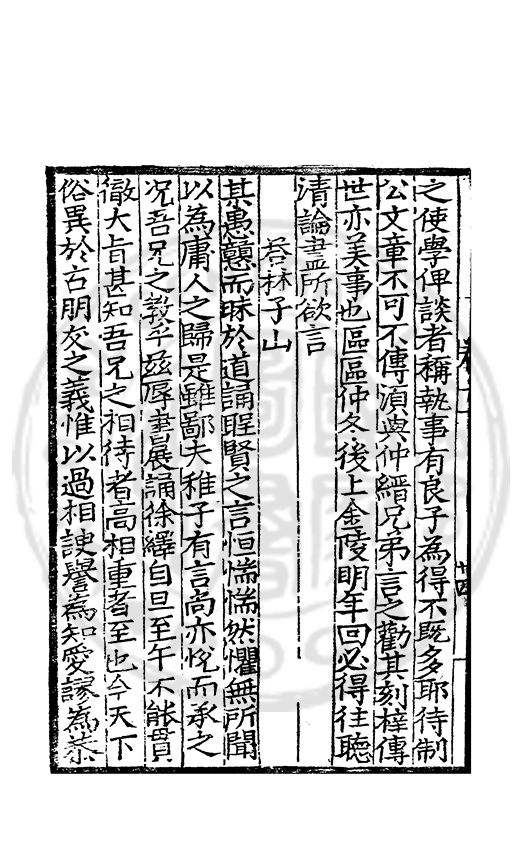 之使學俾談者稱執事有良子為得不既多耶待制
公文章不可不傳須與仲縉兄弟言之勸其刻梓傳
世亦美事也區區仲冬後上金陵明年回必得往聽
清論盡所欲言
荅林子山
某愚戇而昧於道誦聖賢之言恒惴惴然懼無所聞
以為庸人之歸是雖鄙夫稚子有言尚亦悅而承之
况吾兄之教乎茲辱書展誦徐繹自旦至午不能貫
徹大旨甚知吾兄之相待者高相重者至也今天下
俗異於古朋友之義惟以過相諛譽為知愛謬為恭